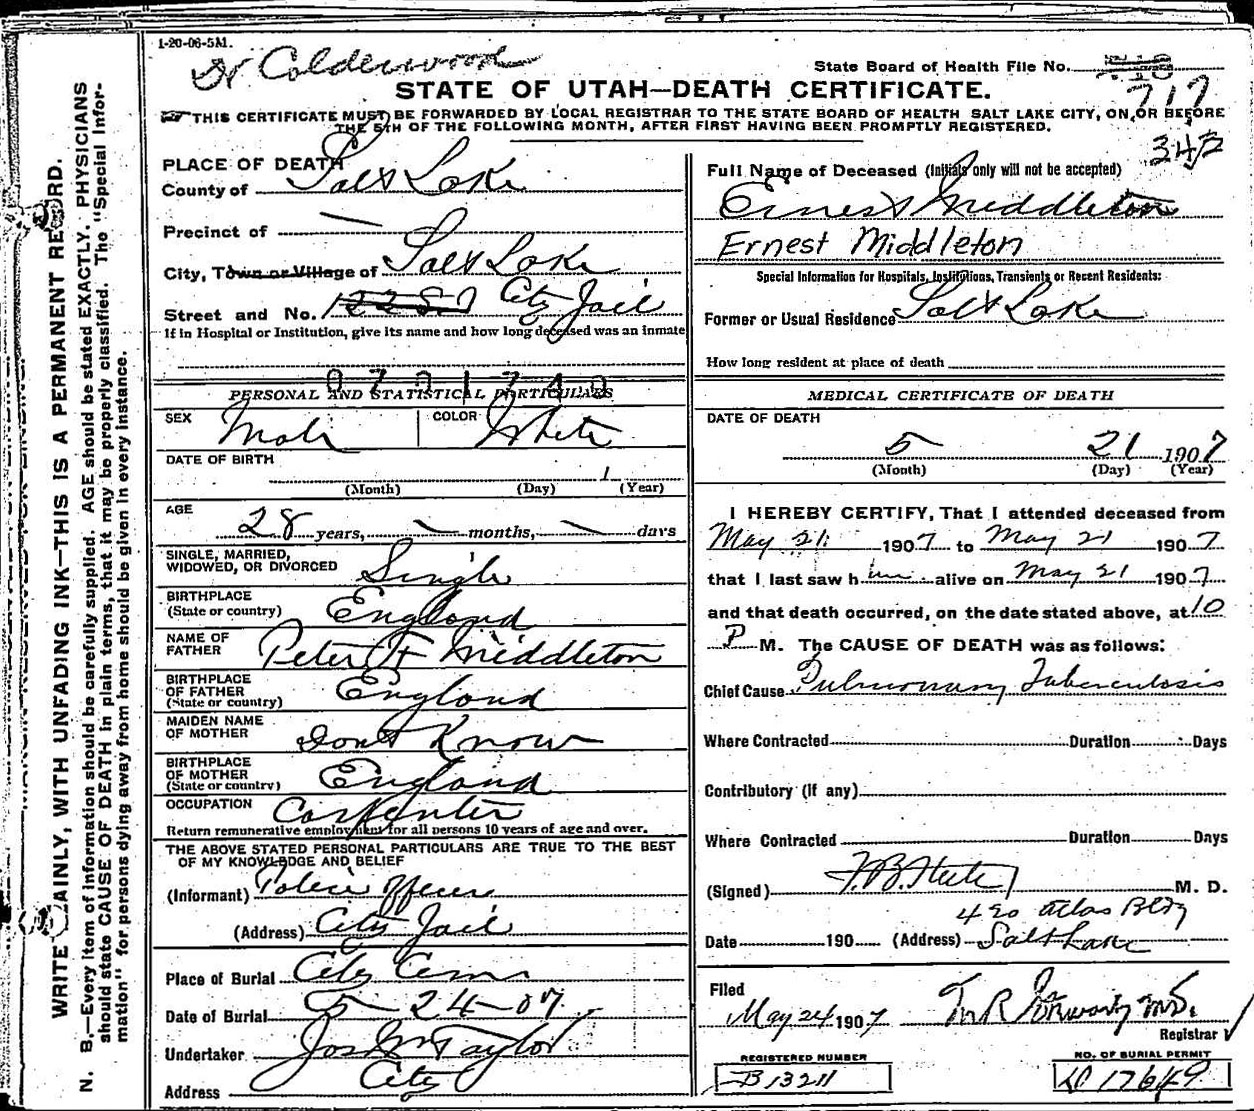 1-20-06-5M.
Dr Calderwood
State Board of Health File No. 717
STATE OF UTAH—DEATH CERTIFICATE.
THIS CERTIFICATE MUST BE FORWARDED BY LOCAL REGISTRAR TO THE STATE BOARD OF HEALTH SALT LAKE CITY, ON OR BEFORE
THE 5TH OF THE FOLLOWING MONTH, AFTER FIRST HAVING BEEN PROMPTLY REGISTERED.
WRITE PLAINLY, WITH UNFADING INK—THIS IS A PERMANENT RECORD.
N. B.—Every item of information should be carefully supplied. AGE should be stated EXACTLY. PHYSICIANS
should state CAUSE OF DEATH in plain terms, that it may be properly classified. The "Special Infor-
mation" for persons dying away from home should be given in every instance.
PLACE OF DEATH
County of Salt Lake
Precinct of —
City, Town or Village of Salt Lake
Street and No. City Jail
If in Hospital or Institution, give its name and how long deceased was an inmate
PERSONAL AND STATISTICAL PARTICULARS
SEX Male COLOR White
DATE OF BIRTH
(Month) (Day) 1 (Year)
AGE
28 years, — months, — days
SINGLE, MARRIED,
WIDOWED, OR DIVORCED Single
BIRTHPLACE
(State or country) England
NAME OF
FATHER Peter F Middleton
BIRTHPLACE
OF FATHER
(State or country) England
MAIDEN NAME
OF MOTHER Dont Know
BIRTHPLACE
OF MOTHER
(State or country) England
OCCUPATION Carpenter
Return remunerative employment for all persons 10 years of age and over.
THE ABOVE STATED PERSONAL PARTICULARS ARE TRUE TO THE BEST
OF MY KNOWLEDGE AND BELIEF
(Informant) Police Officers
(Address) City Jail
Place of Burial City Cem
Date of Burial 5-24-07
Undertaker Jos Wm Taylor
Address City
342
Full Name of Deceased (Initials only will not be accepted)
Ernest Middleton
Ernest Middleton
Special Information for Hospitals, Institutions, Transients or Recent Residents:
Former or Usual Residence Salt Lake
How long resident at place of death
MEDICAL CERTIFICATE OF DEATH
DATE OF DEATH
5 21 1907
(Month) (Day) (Year)
I HEREBY CERTIFY, That I attended deceased from
May 21 1907 to May 21 1907
that I last saw him alive on May 21 1907
and that death occurred, on the date stated above, at 10
P M. The CAUSE OF DEATH was as follows:
Chief Cause Pulmonary Tuberculosis
Where Contracted Duration Days
Contributory (If any)
Where Contracted Duration Days
(Signed) M. D.
420 Atlas Bldg
Date 190 (Address) Salt Lake
Filed
May 24 1907
Registrar
REGISTERED NUMBER
B 13211
NO. OF BURIAL PERMIT
D 17649